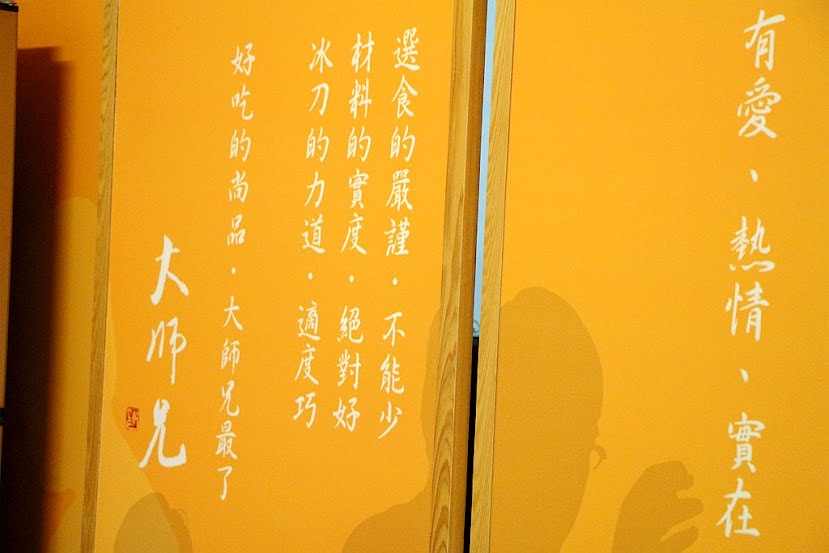 有愛、熱情、實在
選食的嚴謹．不能少
材料的實度．絕對好
冰刀的力道．適度巧
好吃的尚品．大師兄最了
大師兄